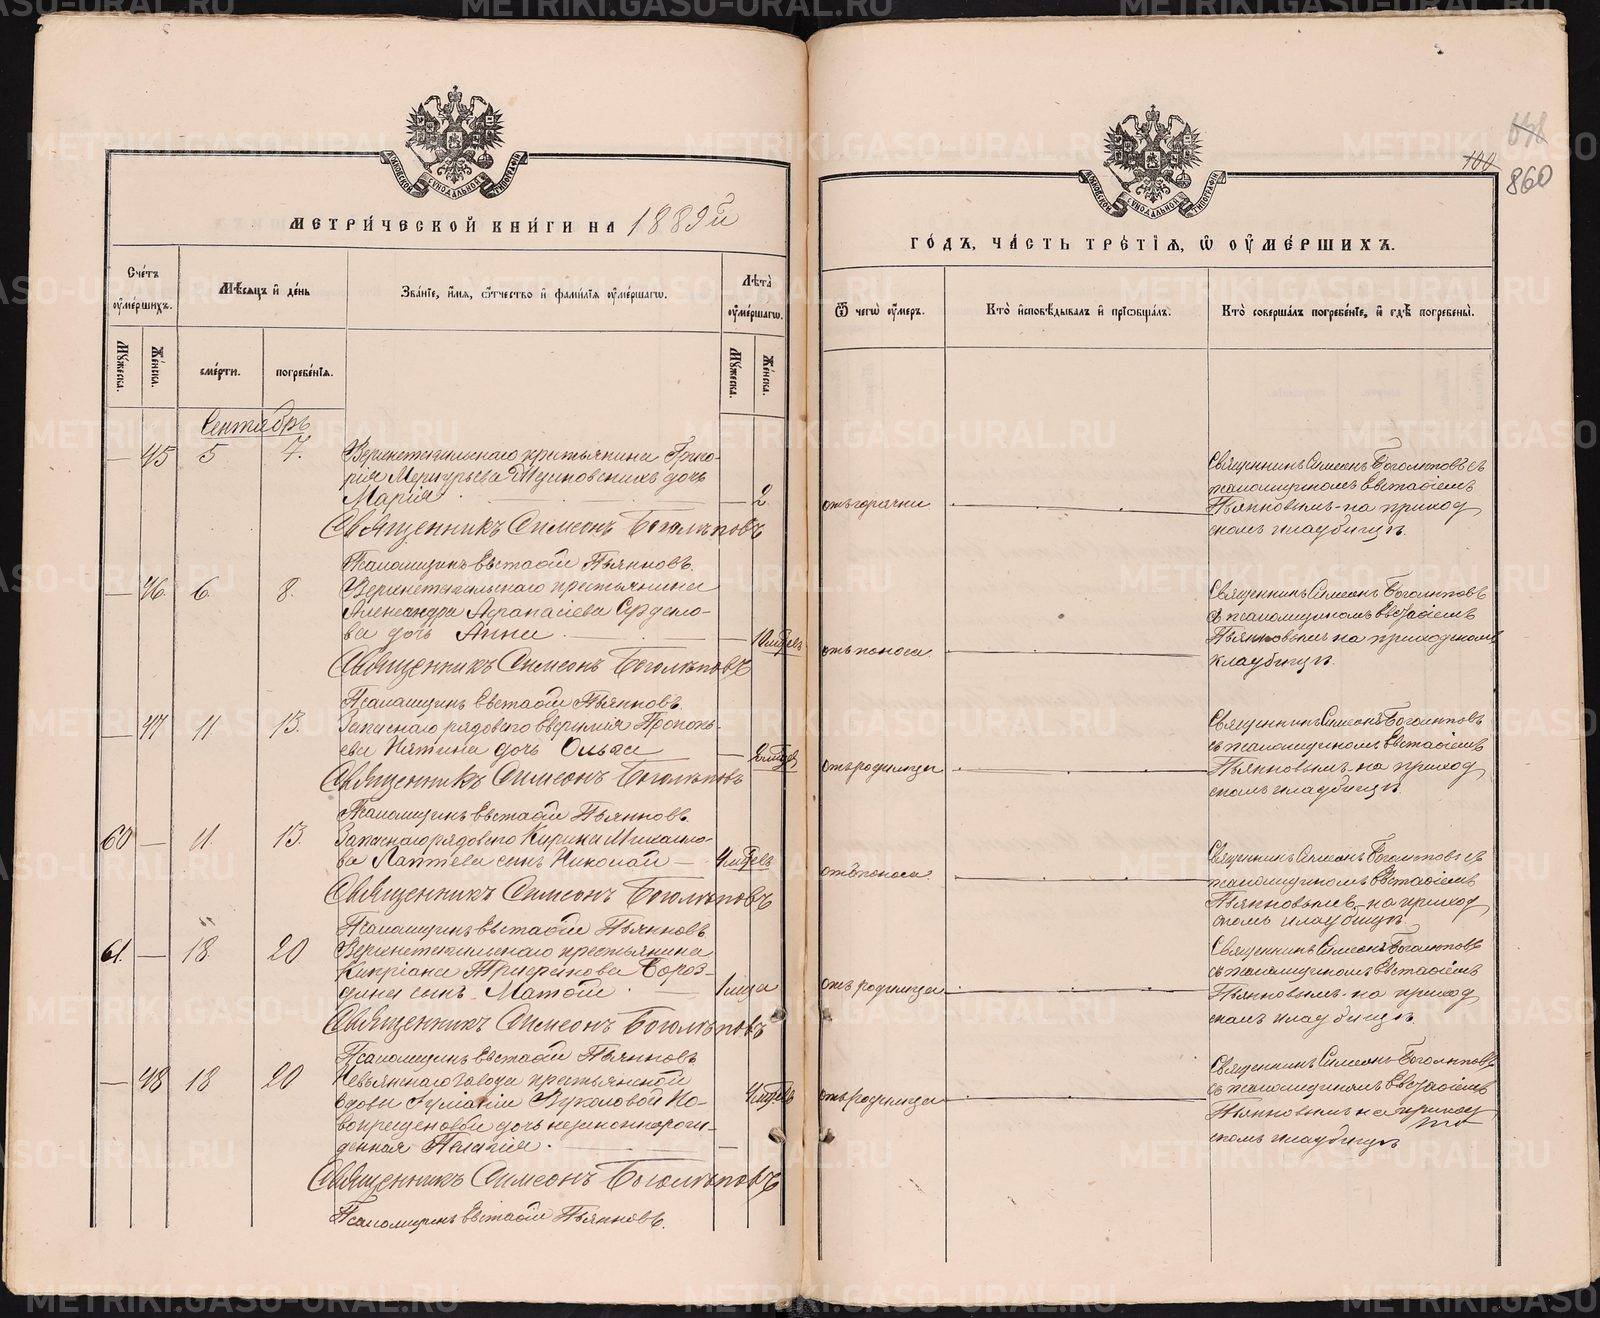 МЕТРИ́ЧЕСКОЙ КНИ́ГИ НА 1889й
Сче́тъ ᲂу҆ме́ршихъ.
Мѣ́сяцъ и҆ де́нь
Зва́нїе, и҆́мя, ѻ҆́тчество и҆ фами́лїя ᲂу҆ме́ршагѡ.
Лѣ́та ᲂу҆ме́ршагѡ.
Мꙋ́жеска.
Же́нска.
сме́рти.
погребе́нїя.
Мꙋ́жеска.
Же́нска.
Сентябрь
— 45 5 7. Верхнетагильскаго крестьянина Григо-
рия Меркурьева дочь
Мария — 2
Священникъ Симеонъ Боголѣповъ
Псаломщикъ Евстафій Пьянковъ.
— 46 6 8. Верхнетагильскаго крестьянина
Александра Афанасіева
дочь Анна — 10 мѣсяцев
Священникъ Симеонъ Боголѣповъ
Псаломщикъ Евстафій Пьянковъ.
— 47 11 13. Запаснаго рядового Прокопь-
ева дочь Ольга —
Священникъ Симеонъ Боголѣповъ
Псаломщикъ Евстафій Пьянковъ.
60 — 11. 13. Запаснаго рядового Михайло-
ва Лаптева сынъ Николай —
Священникъ Симеонъ Боголѣповъ
Псаломщикъ Евстафій Пьянковъ
61. — 18 20 Верхнетагильскаго крестьянина
Кипріана Трифонова Бороз-
дина сынъ Матфій — 1 мца
Священникъ Симеонъ Боголѣповъ
Псаломщикъ Евстафій Пьянковъ
— 48 18 20 Невьянскаго завода крестьянской
вдовы Іуліаніи Вуколовой
дочь незаконнорож-
денная Пелагія — —
Священникъ Симеонъ Боголѣповъ
Псаломщикъ Евстафій Пьянковъ.
100
860
ГО́ДЪ, ЧА́СТЬ ТРЕ́ТЇЯ, Ѡ҆ ОУ҆МЕ́РШИХЪ.
Ѿ чегѡ̀ ᲂу҆́меръ.
Кто̀ и҆сповѣ́дывалъ и҆ прїѡбща́лъ.
Кто̀ соверша́лъ погребе́нїе, и҆ гдѣ̀ погребены̀.
отъ горячки —
Священникъ Симеонъ Боголѣповъ съ
псаломщикомъ Евстафіемъ
Пьянковымъ на приход
скомъ кладбищѣ.
отъ поноса —
Священникъ Симеонъ Боголѣповъ
съ псаломщикомъ Евстафіемъ
Пьянковымъ на приходскомъ
кладбищѣ.
отъ родимца —
Священникъ Симеонъ Боголѣповъ
съ псаломщикомъ Евстафіемъ
Пьянковымъ на приход
скомъ кладбищѣ.
отъ поноса —
Священникъ Симеонъ Боголѣповъ съ
псаломщикомъ Евстафіемъ
Пьянковымъ на приход
скомъ кладбищѣ.
отъ родимца —
Священникъ Симеонъ Боголѣповъ
съ псаломщикомъ Евстафіемъ
Пьянковымъ на приход
скомъ кладбищѣ
отъ родимца —
Священникъ Симеонъ Боголѣповъ
съ псаломщикомъ Евстафіемъ
Пьянковымъ на приход
скомъ кладбищѣ
METRIKI.GASO-URAL.RU